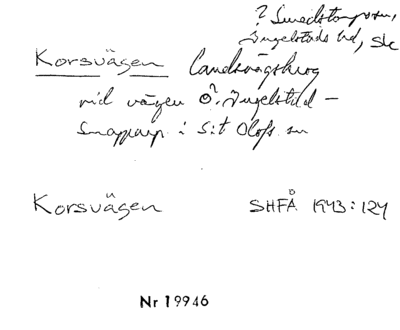 ? Smedstorps sn,
Ingelstads hd, Sk
Korsvägen Landsvägskrog
vid vägen Ö? Ingelstad –
Snapparp i S:t Olofs sn
Korsvägen SHFÅ 1943:124
Nr 19946